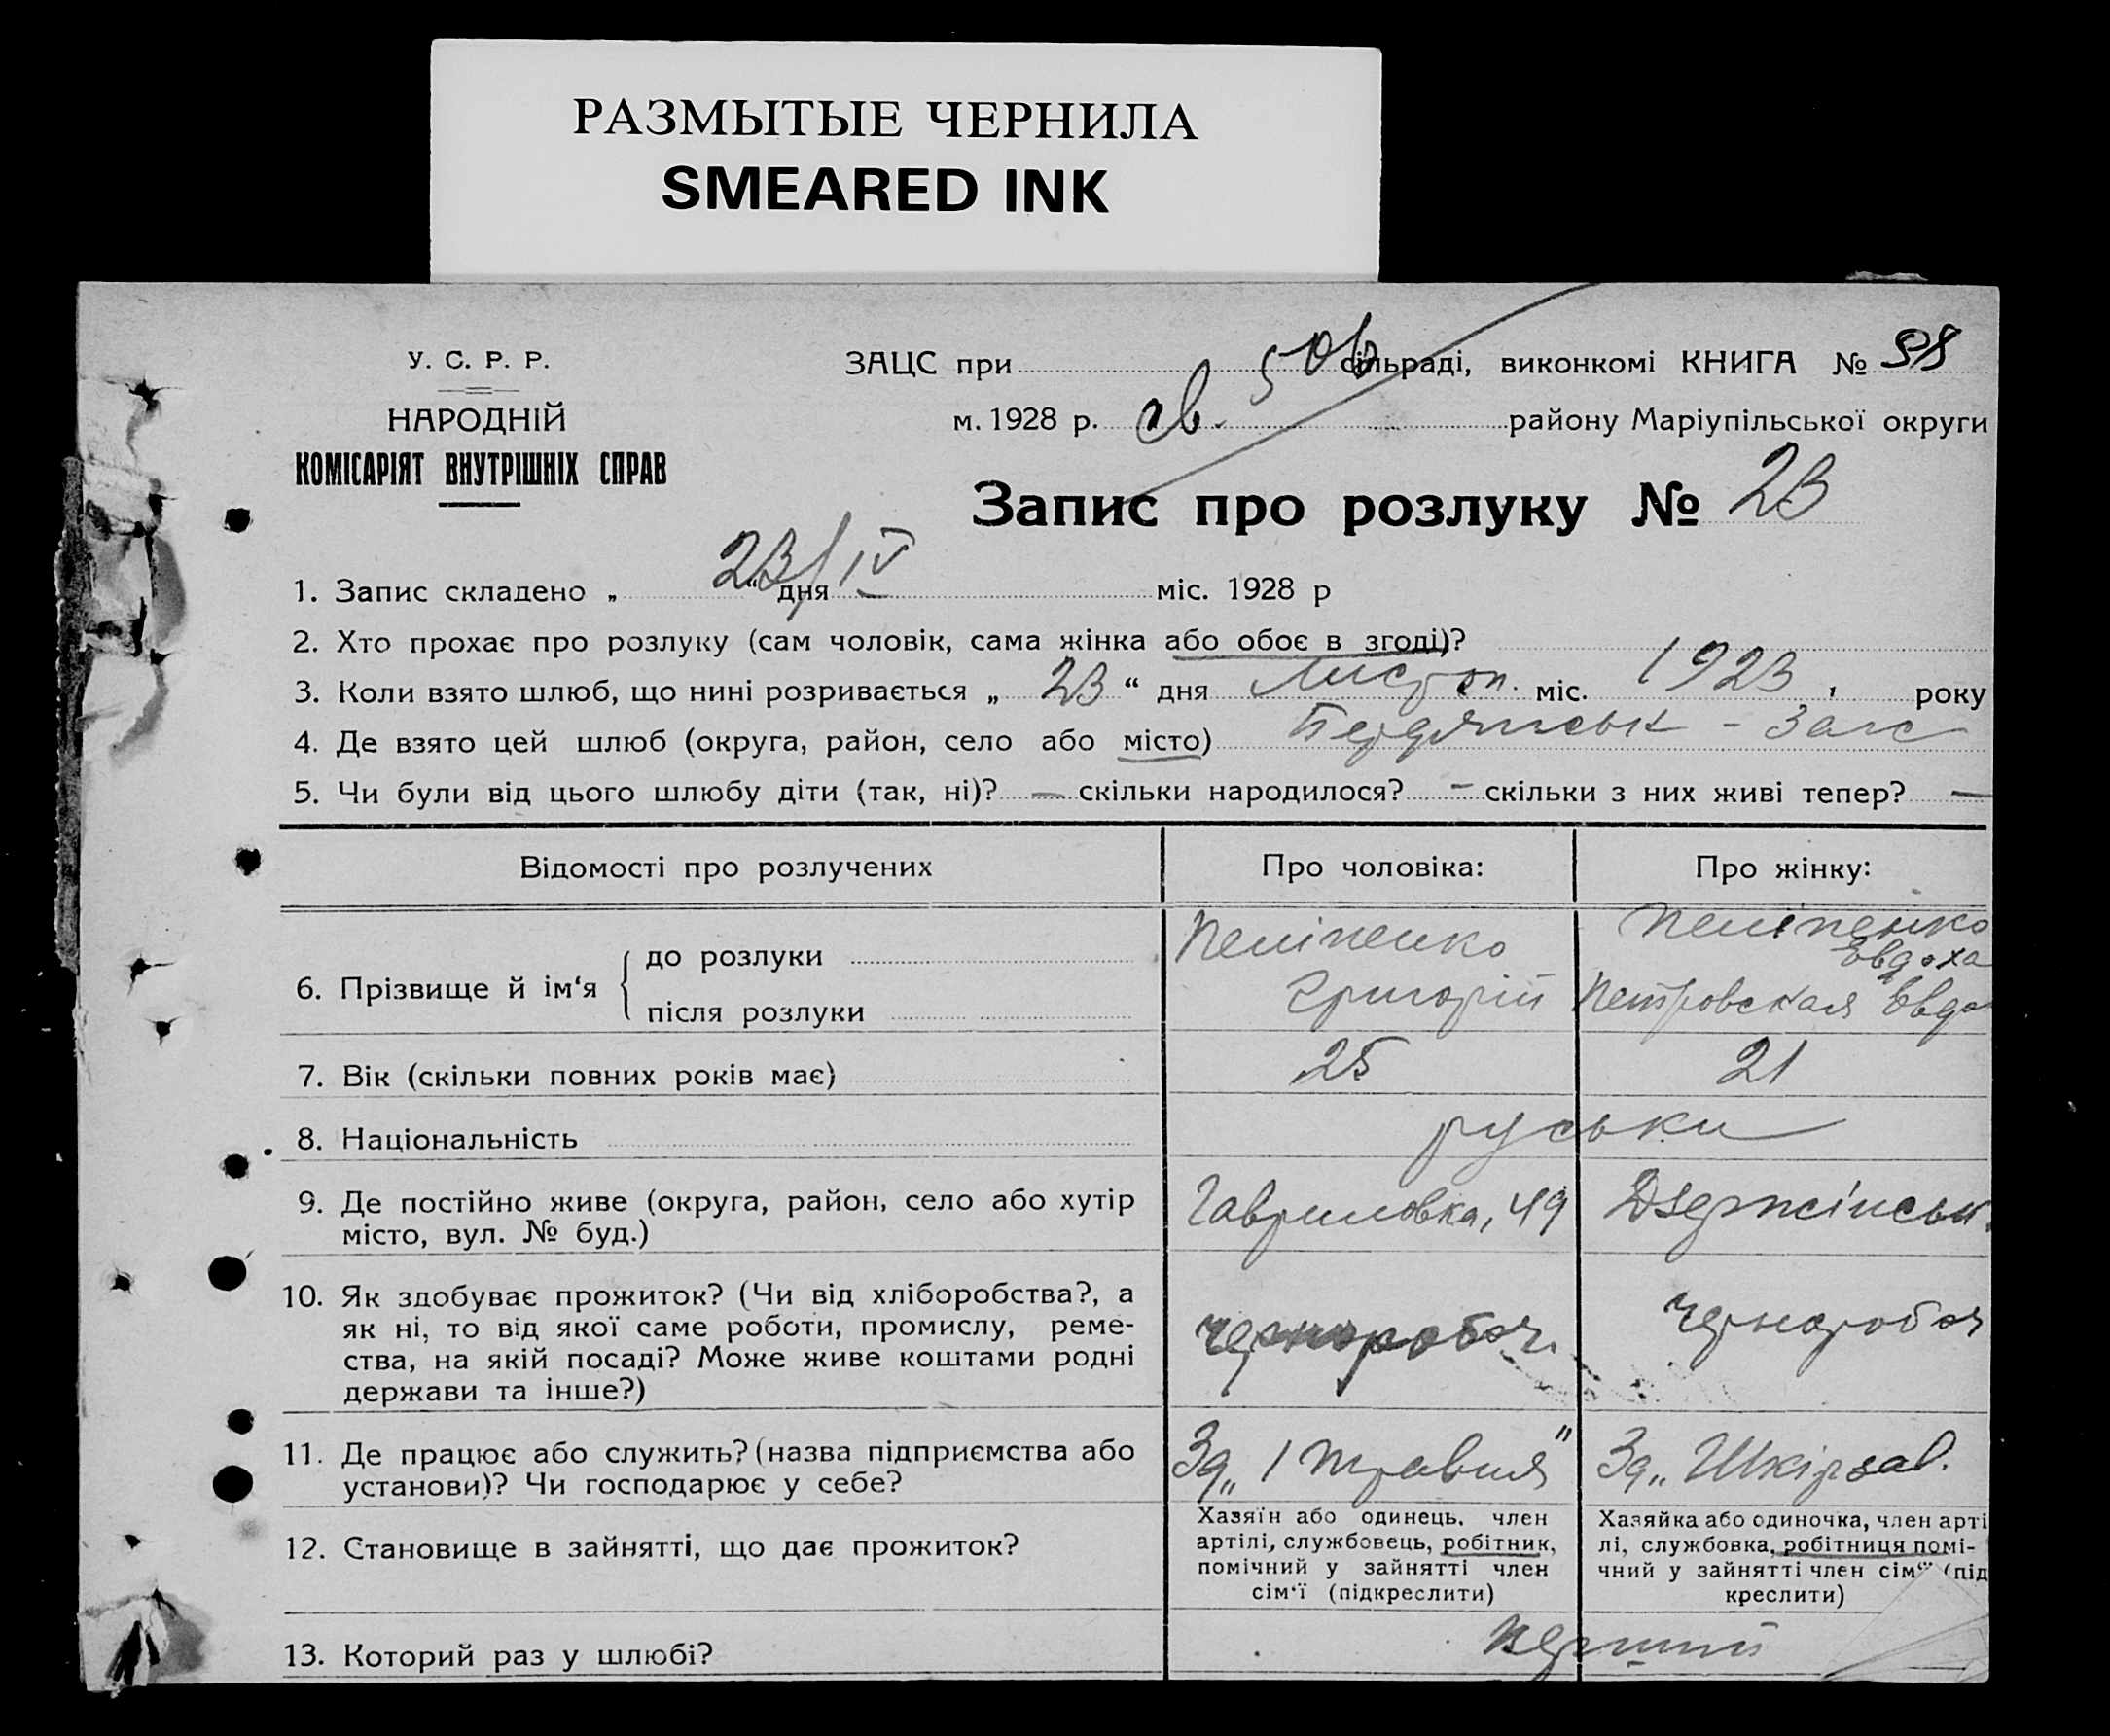 РАЗМЫТЫЕ ЧЕРНИЛА
SMEARED INK
У. С. Р. Р.
НАРОДНІЙ
КОМІСАРІЯТ ВНУТРІШНІХ СПРАВ
ЗАЦС при сільраді, виконкомі КНИГА №
м. 1928 р. району Маріупільської округи
Запис про розлуку № 23
1. Запис складено „ 23/IV “ дня міс. 1928 р
2. Хто прохає про розлуку (сам чоловік, сама жінка або обоє в згоді)?
3. Коли взято шлюб, що нині розривається „ 23 “ дня Листоп. міс. 1923 року
4. Де взято цей шлюб (округа, район, село або місто) Бердянськ - Загс
5. Чи були від цього шлюбу діти (так, ні)? — скільки народилося? — скільки з них живі тепер? —
Відомості про розлучених Про чоловіка: Про жінку:
6. Прізвище й ім‘я
до розлуки Пеліпенко Пеліпенко
Евдоха
після розлуки Григорій Петровская Евдо
7. Вік (скільки повних років має) 25 21
8. Національність руськи
9. Де постійно живе (округа, район, село або хутір Гавриловка, 49 Дзержінськ.
місто, вул. № буд.)
10. Як здобуває прожиток? (Чи від хліборобства?, а
як ні, то від якої саме роботи, промислу, реме- чорнороботч. чернороботч
ства, на якій посаді? Може живе коштами родні
держави та інше?)
11. Де працює або служить? (назва підприємства або Зд „1 травня" Зд „Шкірзав.
установи)? Чи господарює у себе?
12. Становище в зайнятті, що дає прожиток?
Хазяїн або одинець, член
артілі, службовець, робітник,
помічний у зайнятті член
сім‘ї (підкреслити)
Хазяйка або одиночка, член арті
лі, службовка, робітниця помі-
чний у зайнятті член сім‘ї (під
креслити)
13. Которий раз у шлюбі? перший